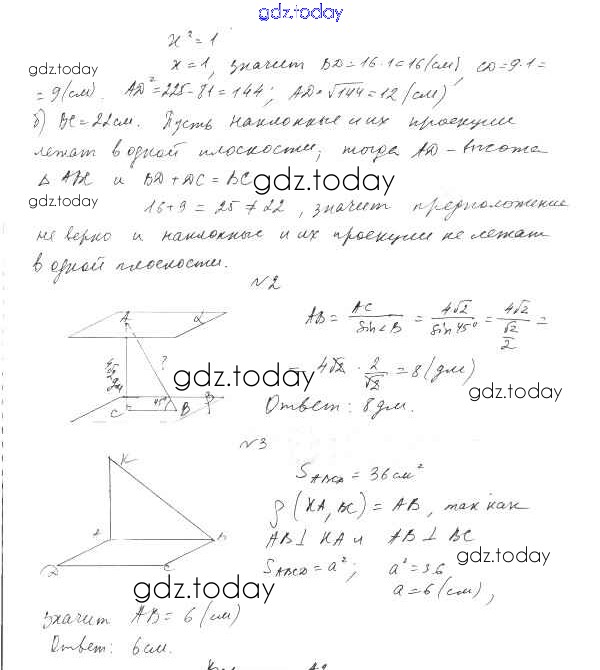 gdz.today
x² = 1
x = 1, значит BD = 16·1 = 16 (см), CD = 9·1 =
gdz.today
= 9 (см). AD² = 225 - 81 = 144; AD = √144 = 12 (см)
б) BC = 22 см. Пусть наклонные и их проекции
лежат в одной плоскости, тогда AD - высота
Δ ABC и BD + DC = BC
gdz.today
gdz.today
16 + 9 = 25 ≠ 22, значит предположение
не верно и наклонные и их проекции не лежат
в одной плоскости.
№2
A
α
AB = AC / sin∠B = 4√2 / sin 45° = 4√2 / (√2/2) =
4√2 дм
?
= 4√2 · 2/√2 = 8 (дм)
gdz.today
gdz.today
C
45°
B
β
Ответ: 8 дм.
№3
K
S ABCD = 36 см²
ρ (KA, BC) = AB, так как
AB ⊥ KA и AB ⊥ BC
gdz.today
S ABCD = a²; a² = 36
a = 6 (см),
D
C
gdz.today
значит AB = 6 (см)
Ответ: 6 см.
gdz.today